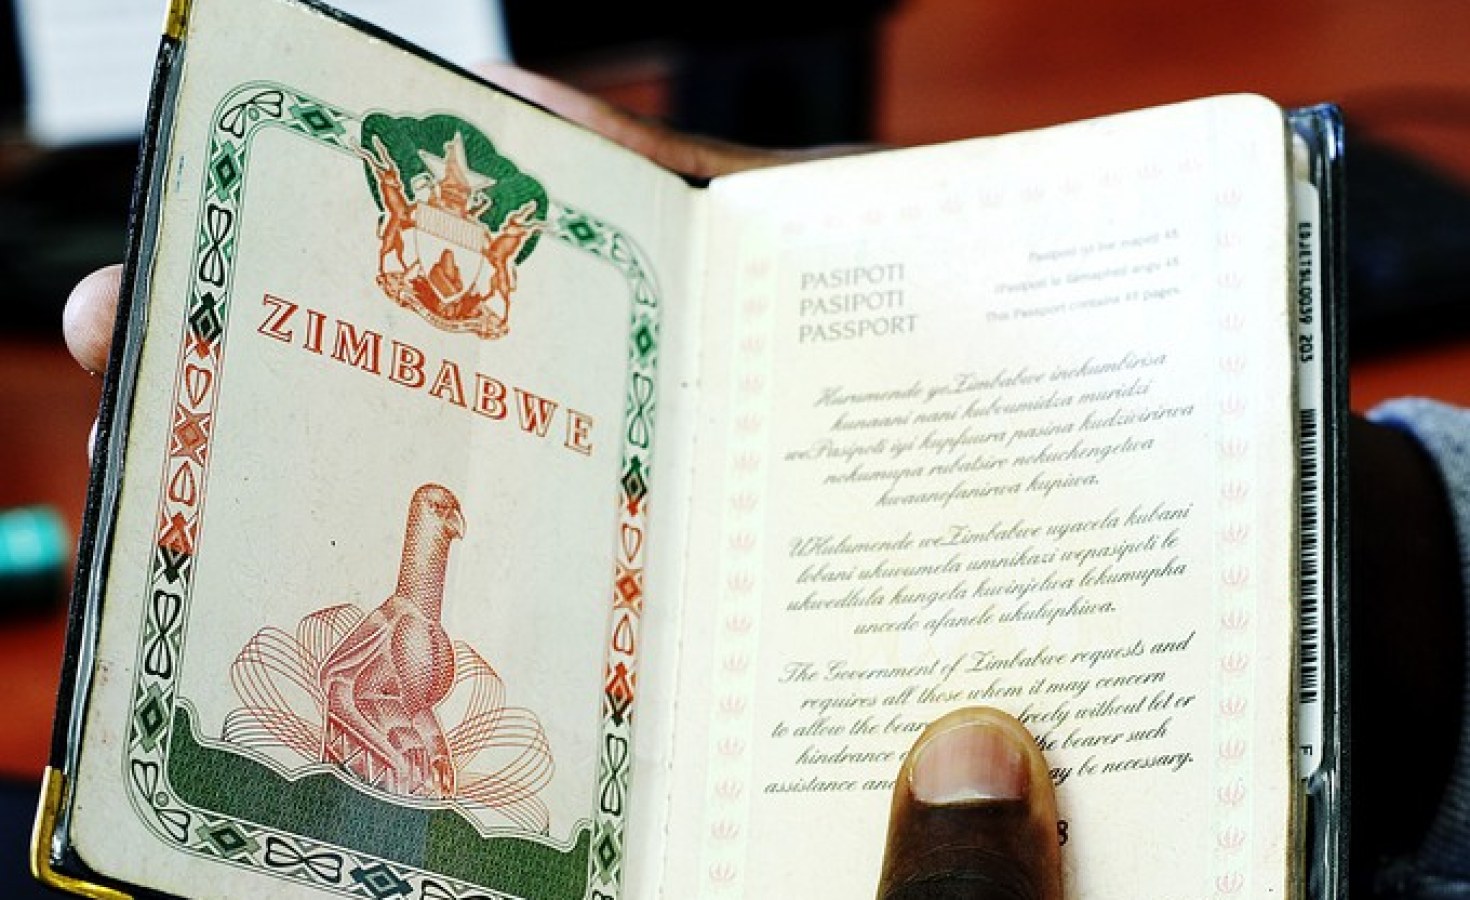 ZIMBABWE
PASIPOTI
PASIPOTI
PASSPORT
This Passport contains 48 pages.
Hurumende yeZimbabwe inokumbirisa
kunaani nani kubvumidza muridzi
wePasipoti iyi kupfuura pasina kudzivirirwa
nokumupa rubatsiro nokuchengetwa
kwaanofanirwa kupiwa.
UHulumende weZimbabwe uyacela kubani
lobani ukuvumela umnikazi wepasipoti le
ukwedlula kungela kuvinjelwa lokumupha
uncedo afanele ukuluphiwa.
The Government of Zimbabwe requests and
requires all those whom it may concern
to allow the freely without let or
hindrance the bearer such
assistance and be necessary.